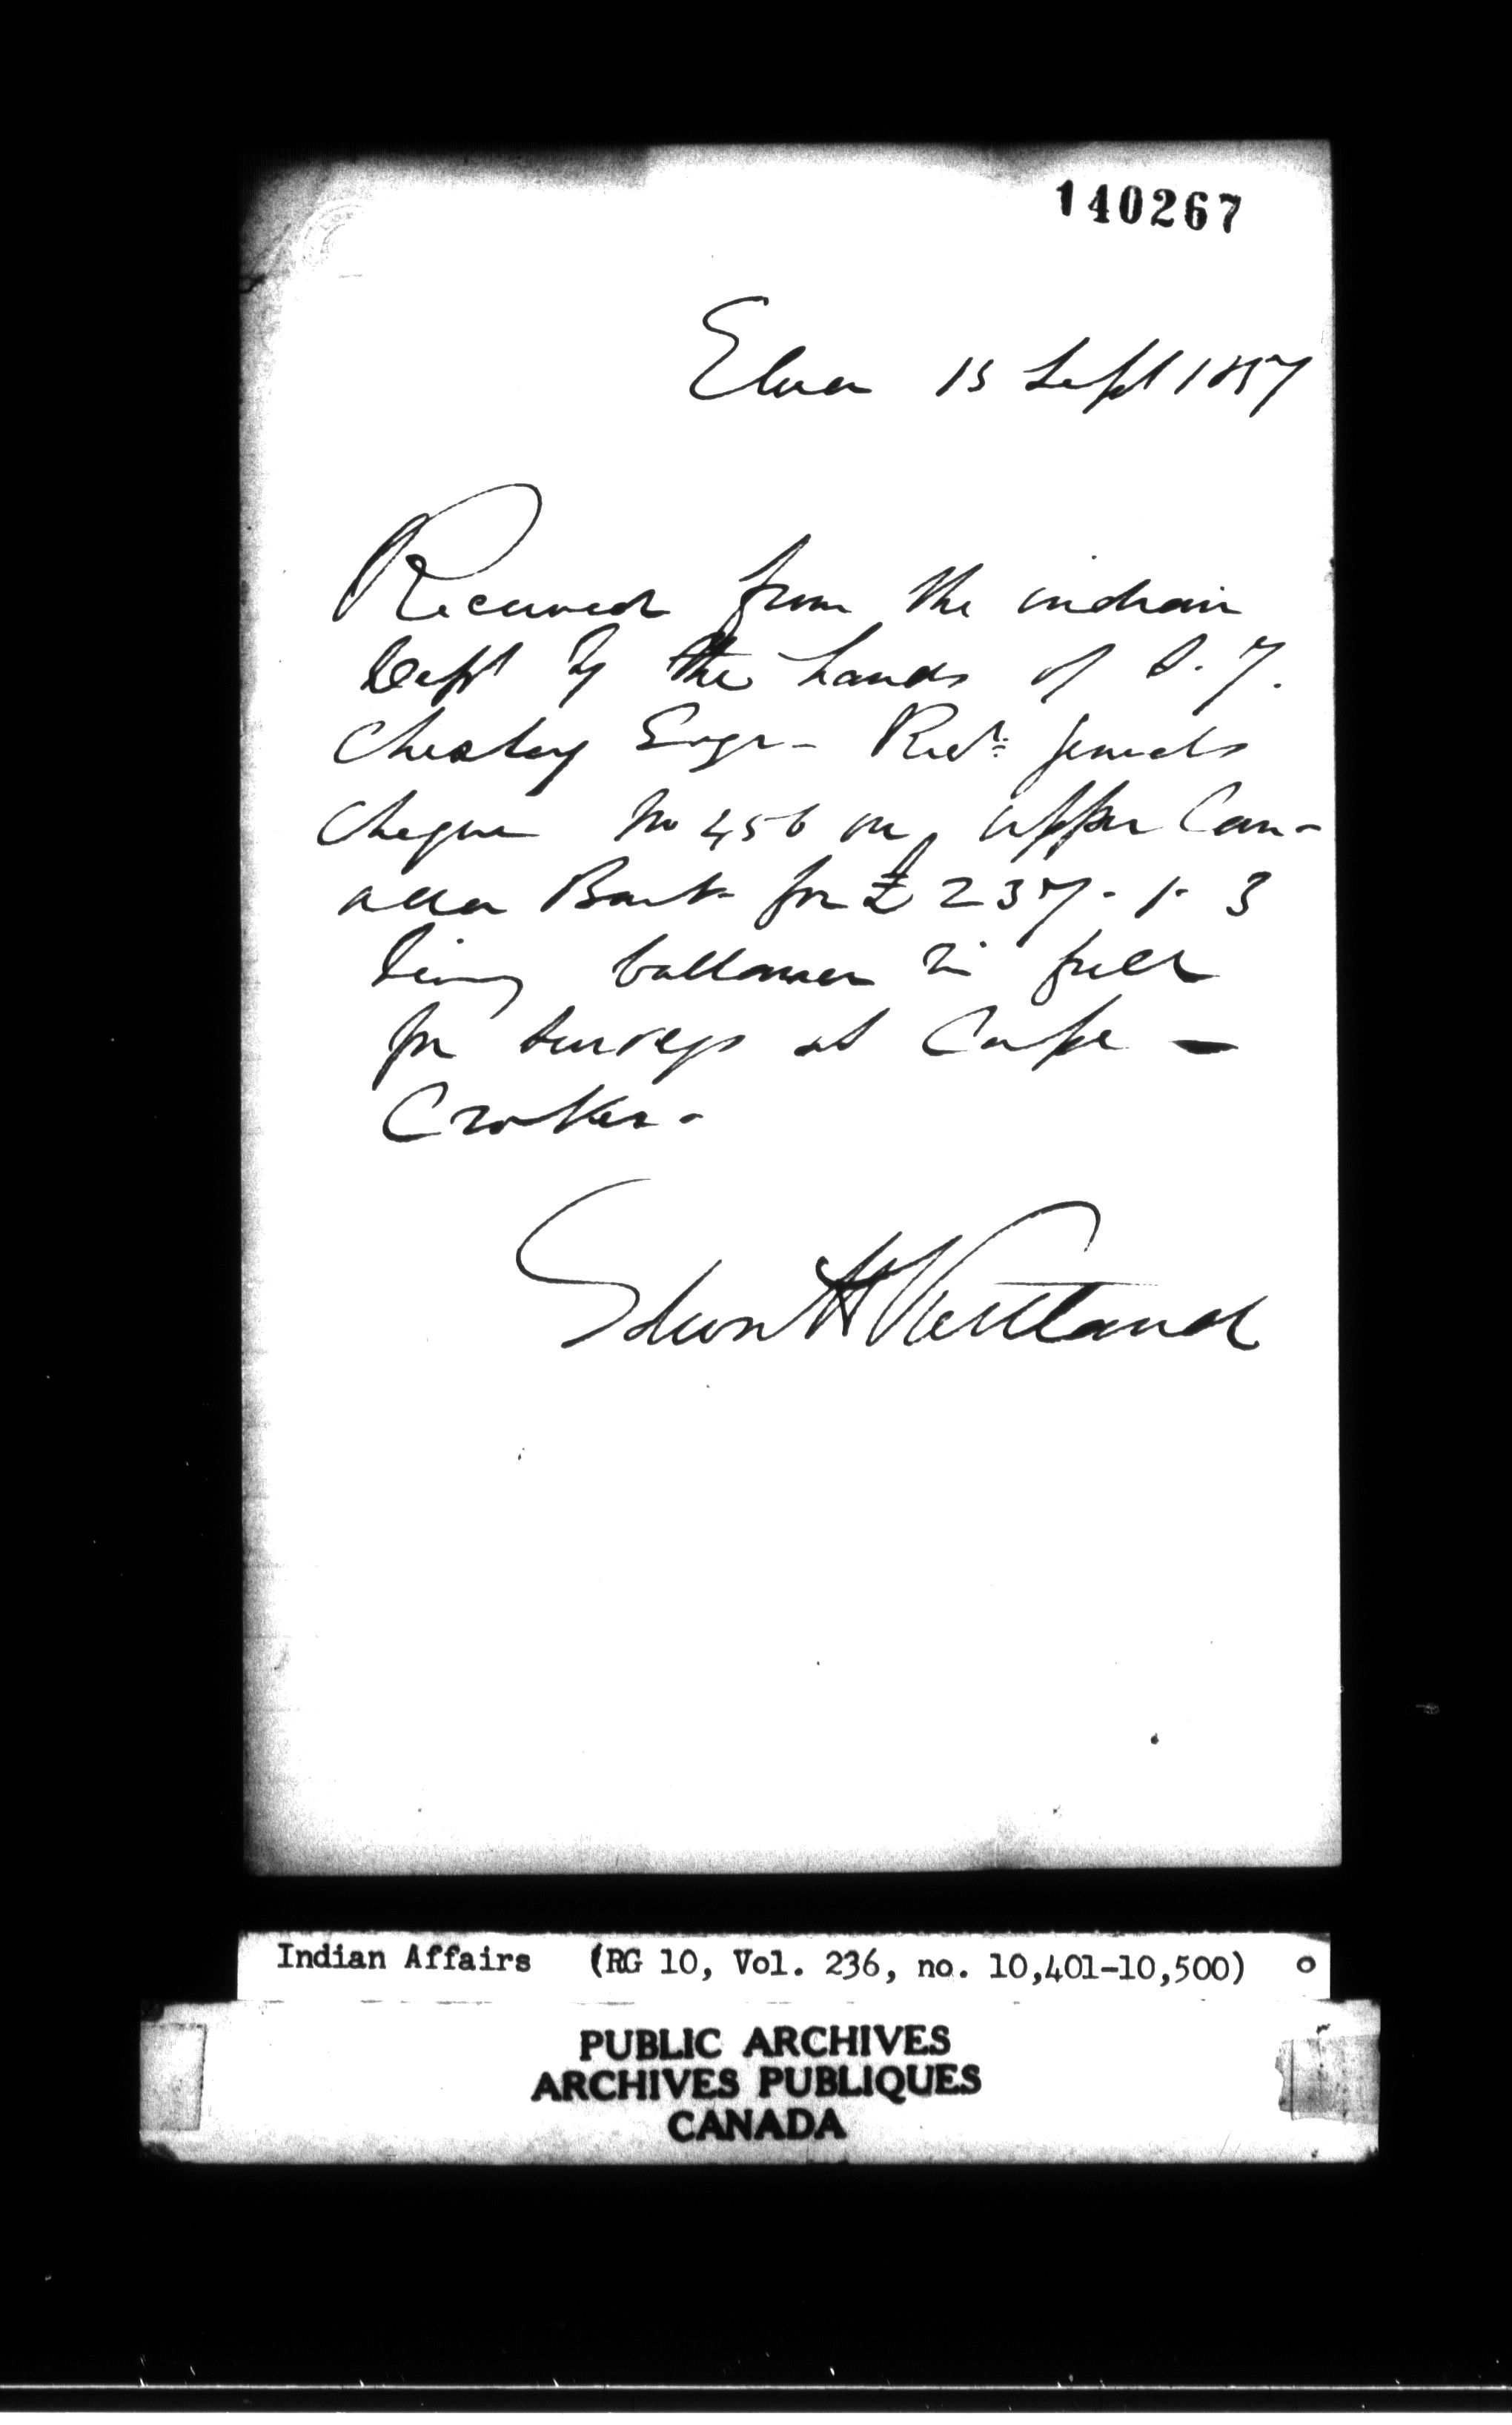 140267
Elora 15 Sept 1857
Received from the indian
Dept by the hands of S. Y.
Chesley Esqr - Richd
Cheque No 456 on Upper Can-
ada Bank for £ 237. 1. 3
being ballance in full
for surveys at Cape -
Croker -
H Kertland
Indian Affairs (RG 10, Vol. 236, no. 10,401-10,500) o
PUBLIC ARCHIVES
ARCHIVES PUBLIQUES
CANADA